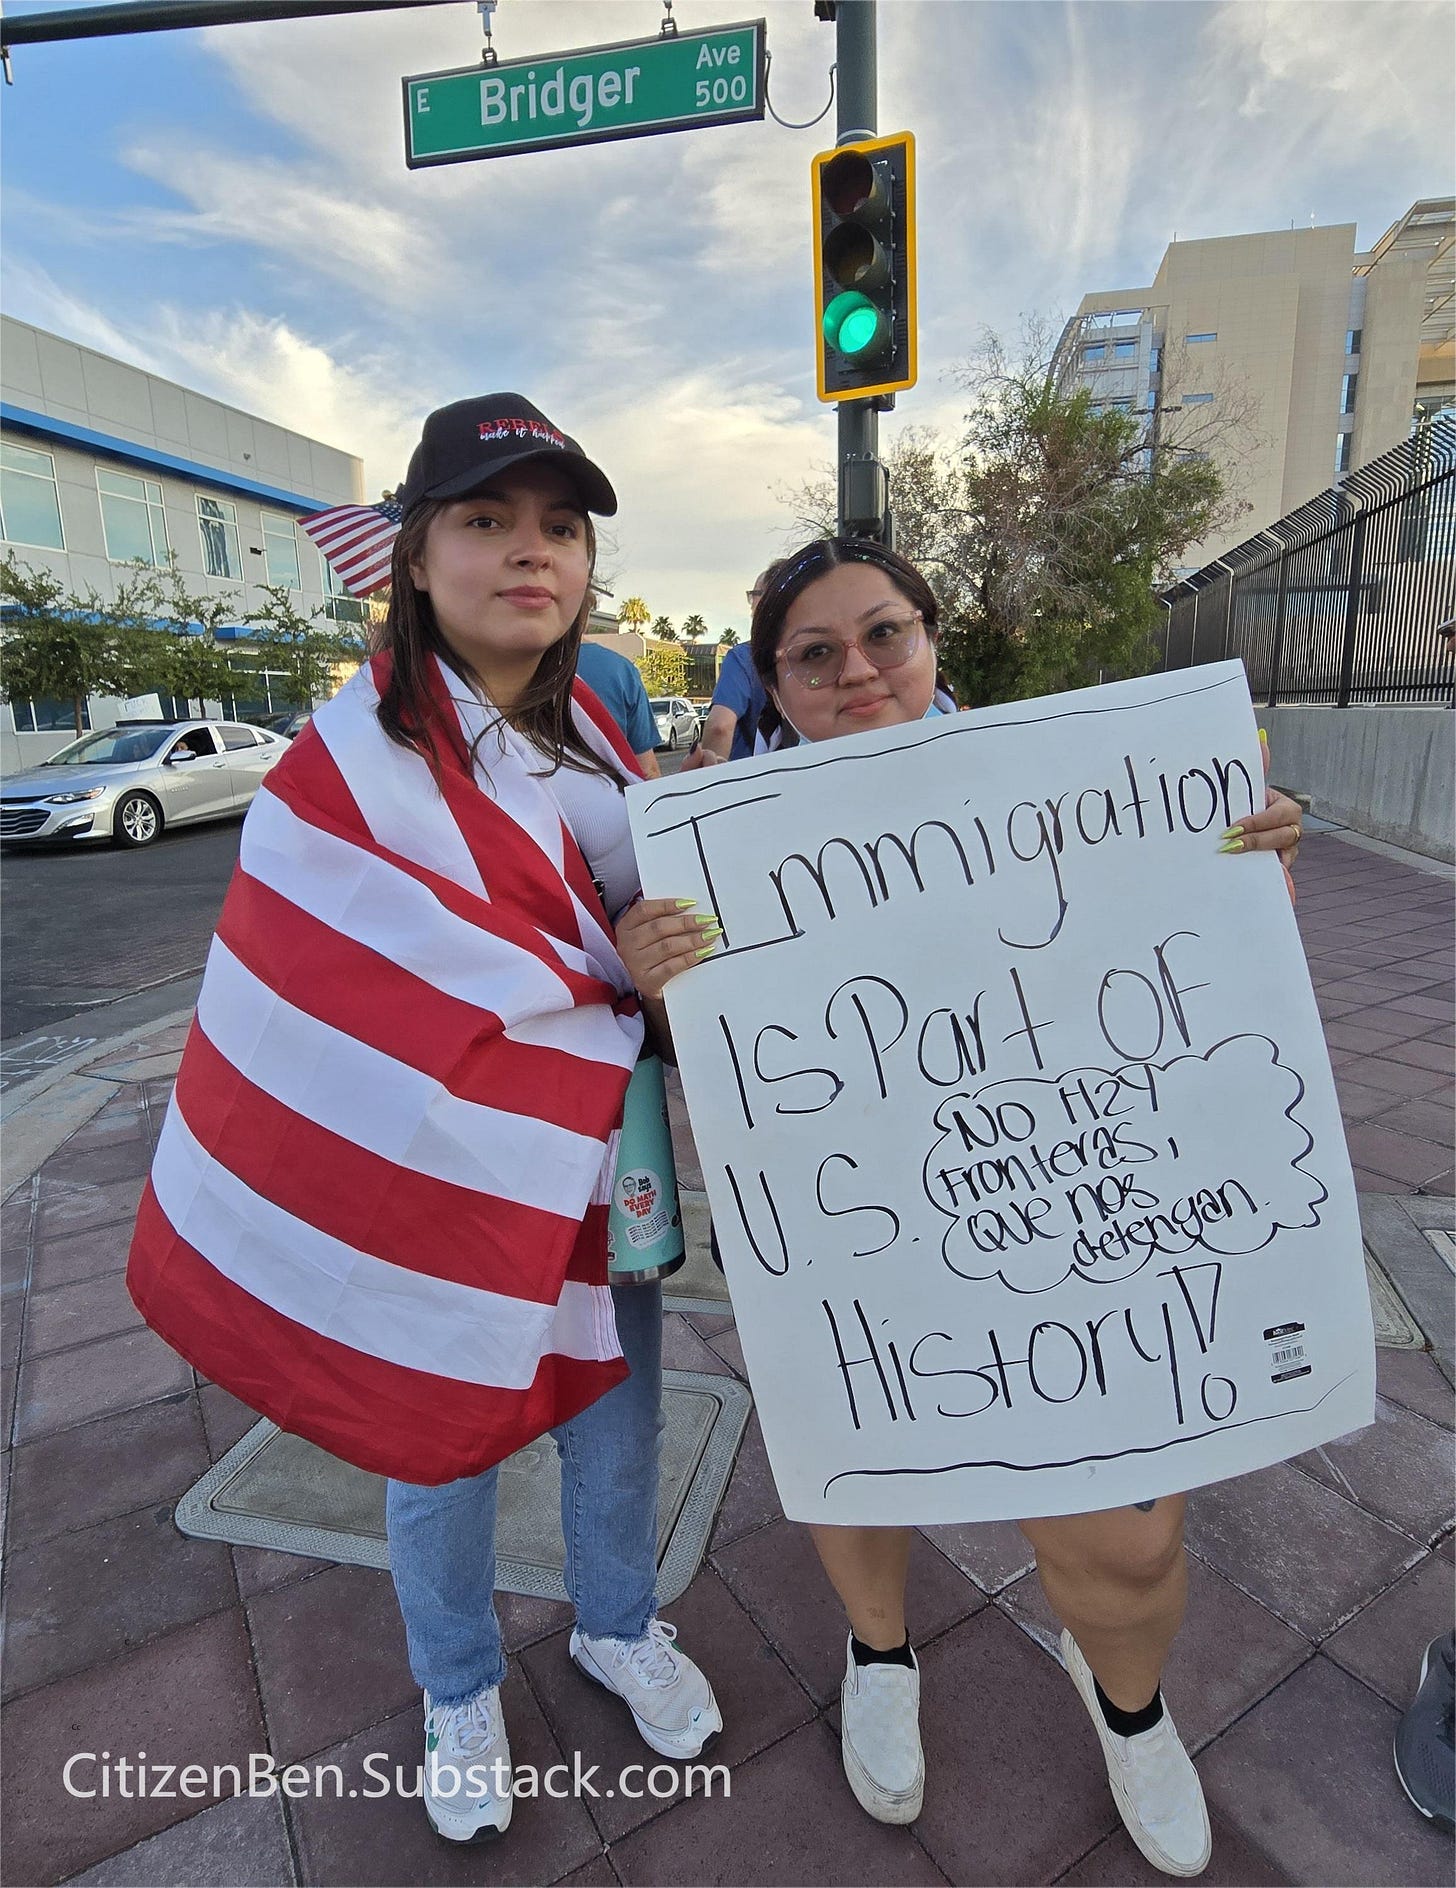 E Bridger Ave 500
REBELS
make it happen
Immigration
Is Part OF
U.S.
NO H2Y
Fronteras,
Que nos
detengan.
History!!
Bob says
DO MATH
EVERY
DAY
CitizenBen.Substack.com